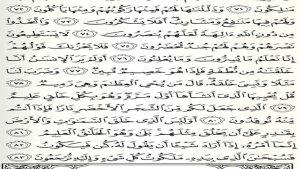 مَٰلِكُونَ ٧١ وَذَلَّلْنَٰهَا لَهُمْ فَمِنْهَا رَكُوبُهُمْ وَمِنْهَا يَأْكُلُونَ ٧٢
وَلَهُمْ فِيهَا مَنَٰفِعُ وَمَشَارِبُ أَفَلَا يَشْكُرُونَ ٧٣ وَٱتَّخَذُوا۟
مِن دُونِ ٱللَّهِ ءَالِهَةً لَّعَلَّهُمْ يُنصَرُونَ ٧٤ لَا يَسْتَطِيعُونَ
نَصْرَهُمْ وَهُمْ لَهُمْ جُندٌ مُّحْضَرُونَ ٧٥ فَلَا يَحْزُنكَ قَوْلُهُمْ
إِنَّا نَعْلَمُ مَا يُسِرُّونَ وَمَا يُعْلِنُونَ ٧٦ أَوَلَمْ يَرَ ٱلْإِنسَٰنُ أَنَّا
خَلَقْنَٰهُ مِن نُّطْفَةٍ فَإِذَا هُوَ خَصِيمٌ مُّبِينٌ ٧٧ وَضَرَبَ لَنَا
مَثَلًا وَنَسِىَ خَلْقَهُۥ قَالَ مَن يُحْىِ ٱلْعِظَٰمَ وَهِىَ رَمِيمٌ ٧٨
قُلْ يُحْيِيهَا ٱلَّذِىٓ أَنشَأَهَآ أَوَّلَ مَرَّةٍ وَهُوَ بِكُلِّ خَلْقٍ عَلِيمٌ
٧٩ ٱلَّذِى جَعَلَ لَكُم مِّنَ ٱلشَّجَرِ ٱلْأَخْضَرِ نَارًا فَإِذَآ أَنتُم
مِّنْهُ تُوقِدُونَ ٨٠ أَوَلَيْسَ ٱلَّذِى خَلَقَ ٱلسَّمَٰوَٰتِ وَٱلْأَرْضَ
بِقَٰدِرٍ عَلَىٰٓ أَن يَخْلُقَ مِثْلَهُم بَلَىٰ وَهُوَ ٱلْخَلَّٰقُ ٱلْعَلِيمُ ٨١
إِنَّمَآ أَمْرُهُۥٓ إِذَآ أَرَادَ شَيْـًٔا أَن يَقُولَ لَهُۥ كُن فَيَكُونُ ٨٢
فَسُبْحَٰنَ ٱلَّذِى بِيَدِهِۦ مَلَكُوتُ كُلِّ شَىْءٍ وَإِلَيْهِ تُرْجَعُونَ ٨٣